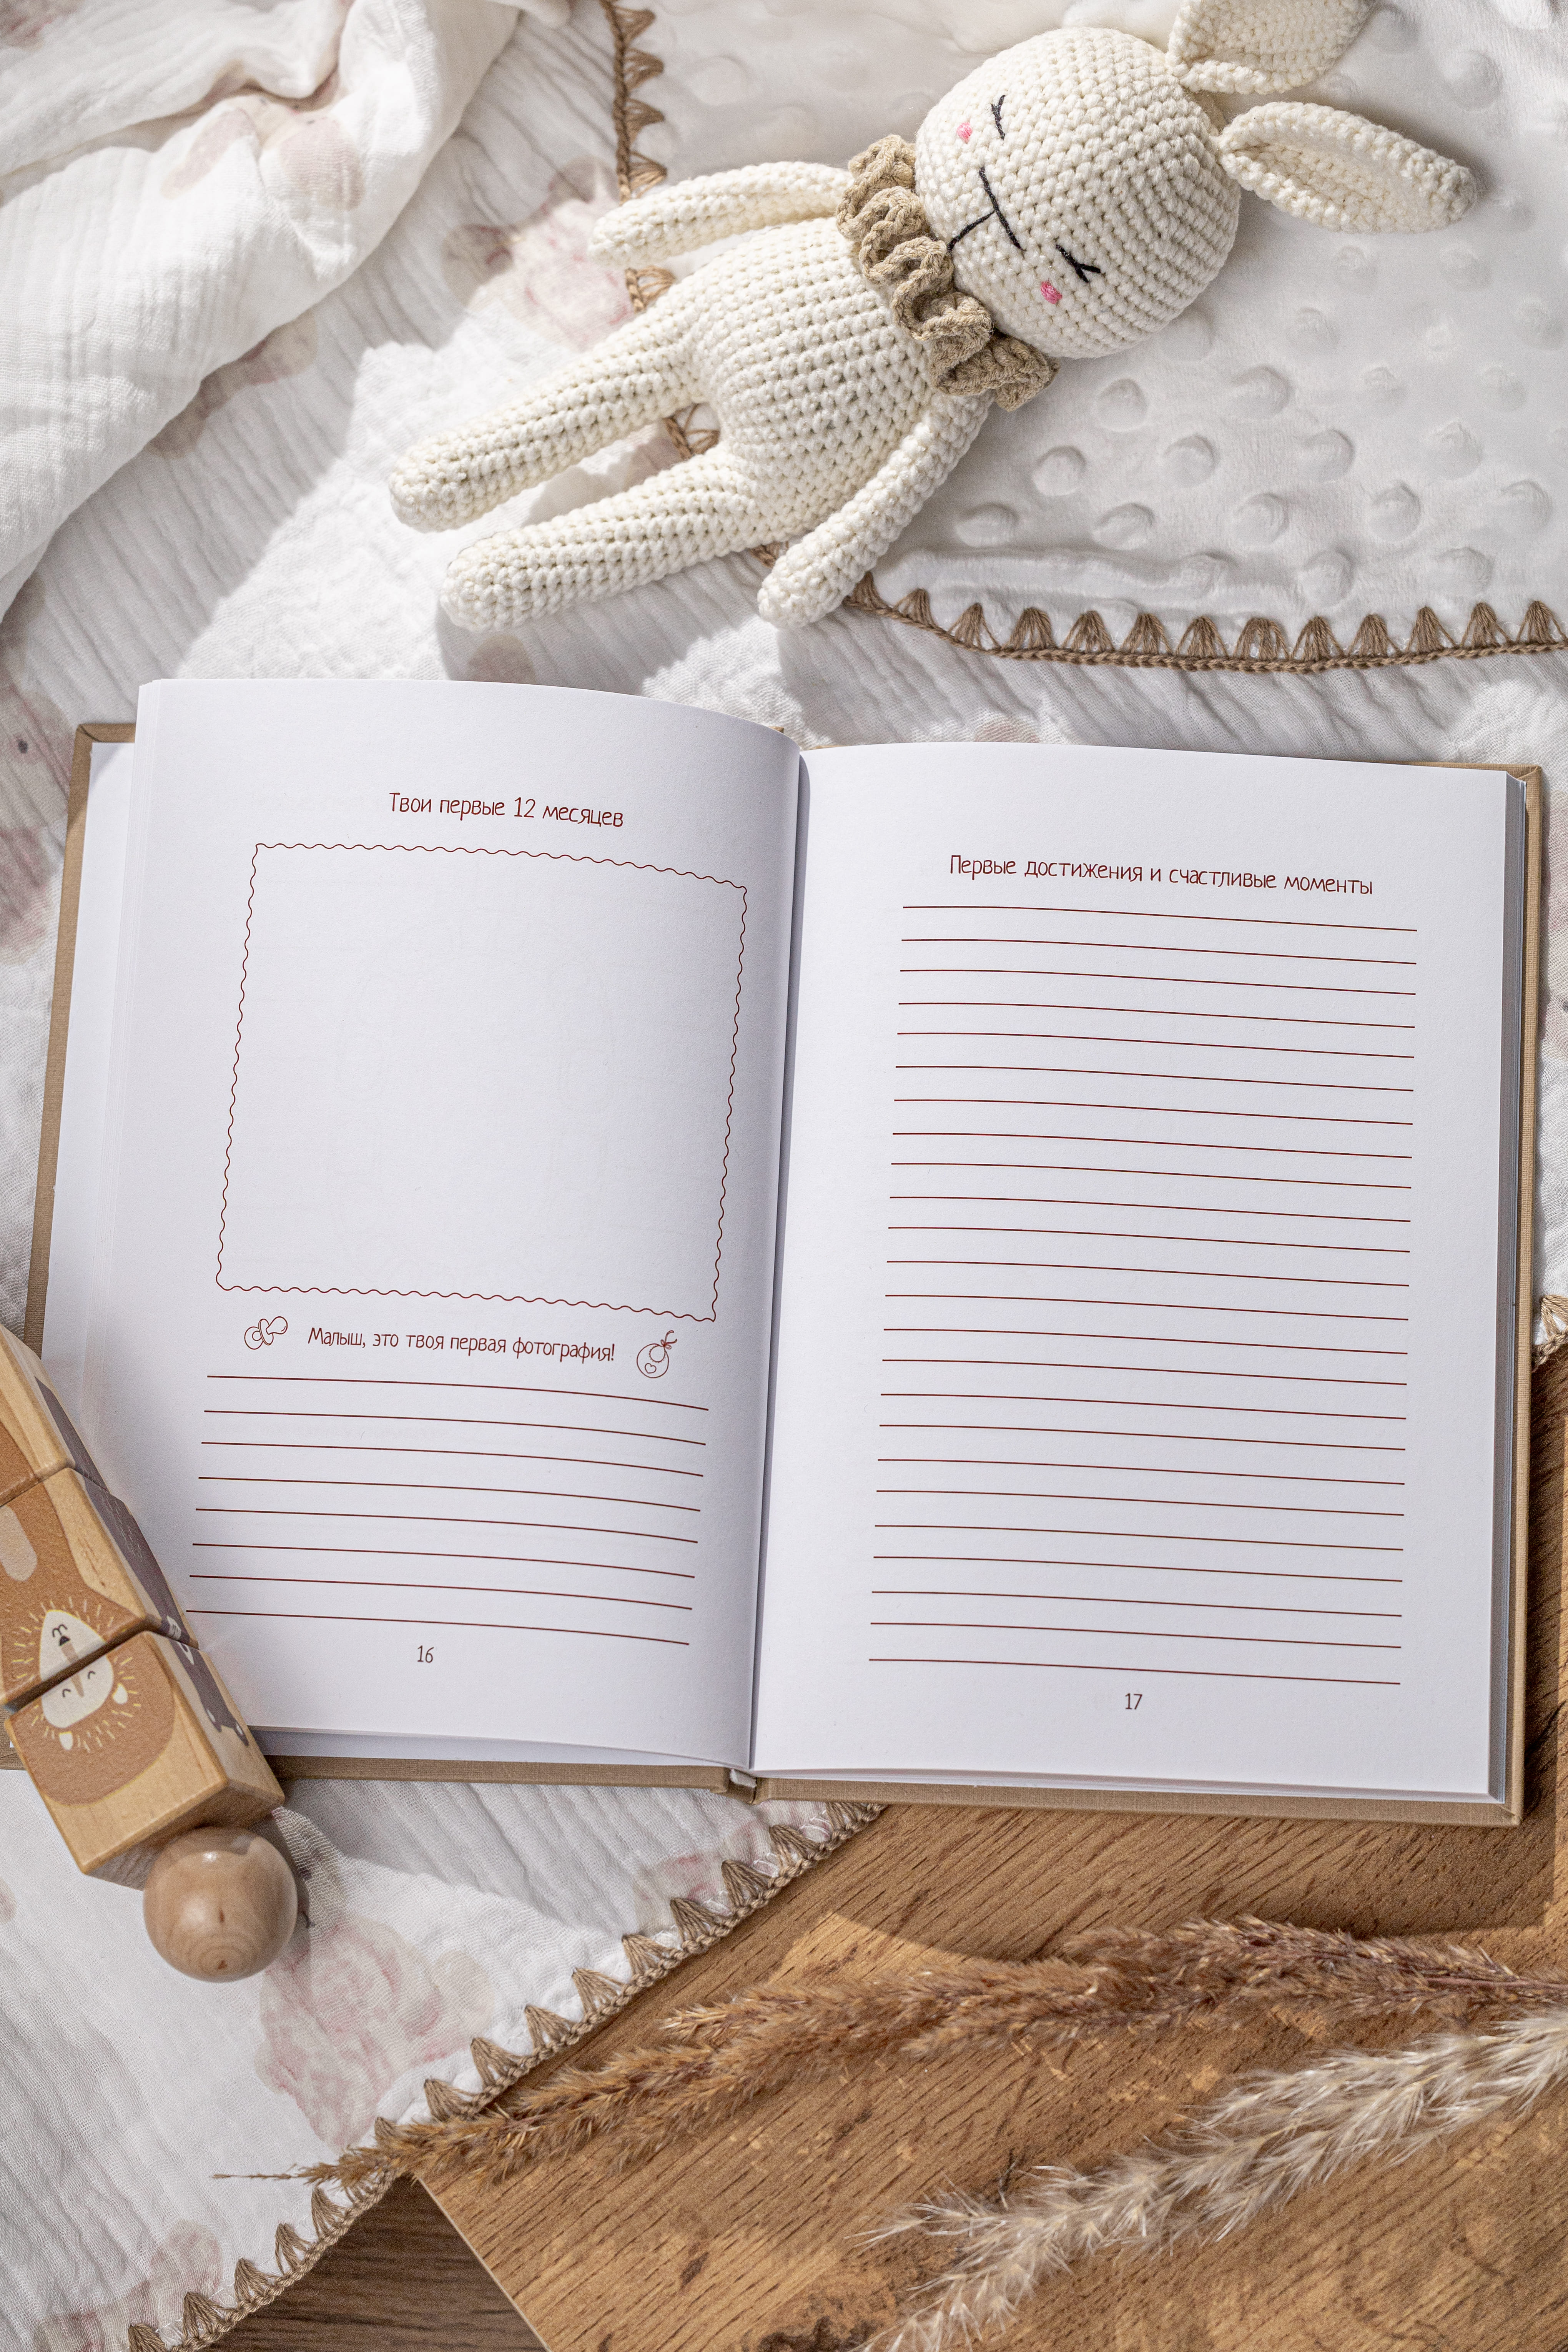 Твои первые 12 месяцев
Малыш, это твоя первая фотография!
16
Первые достижения и счастливые моменты
17